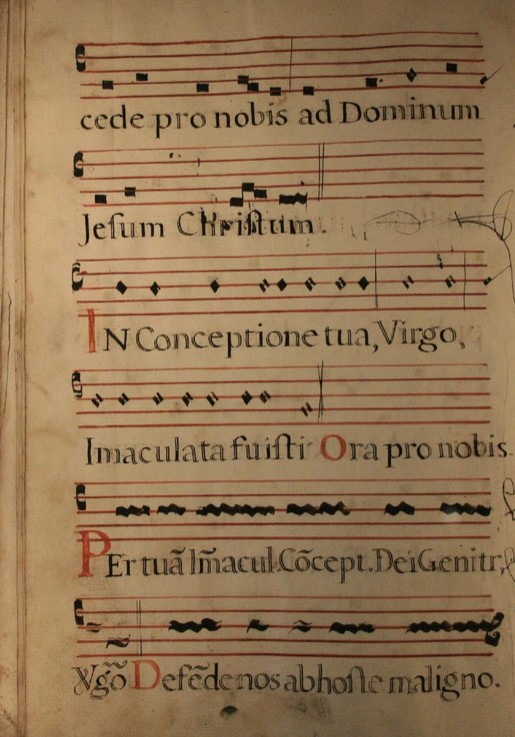 cede pro nobis ad Dominum
Jeſum Chriſtum.
IN Conceptione tua, Virgo,
Imaculata fuiſti Ora pro nobis
PEr tuã Im̃acul. Cõcept. Dei Genitr,
Vgõ Defẽde nos ab hoſte maligno.